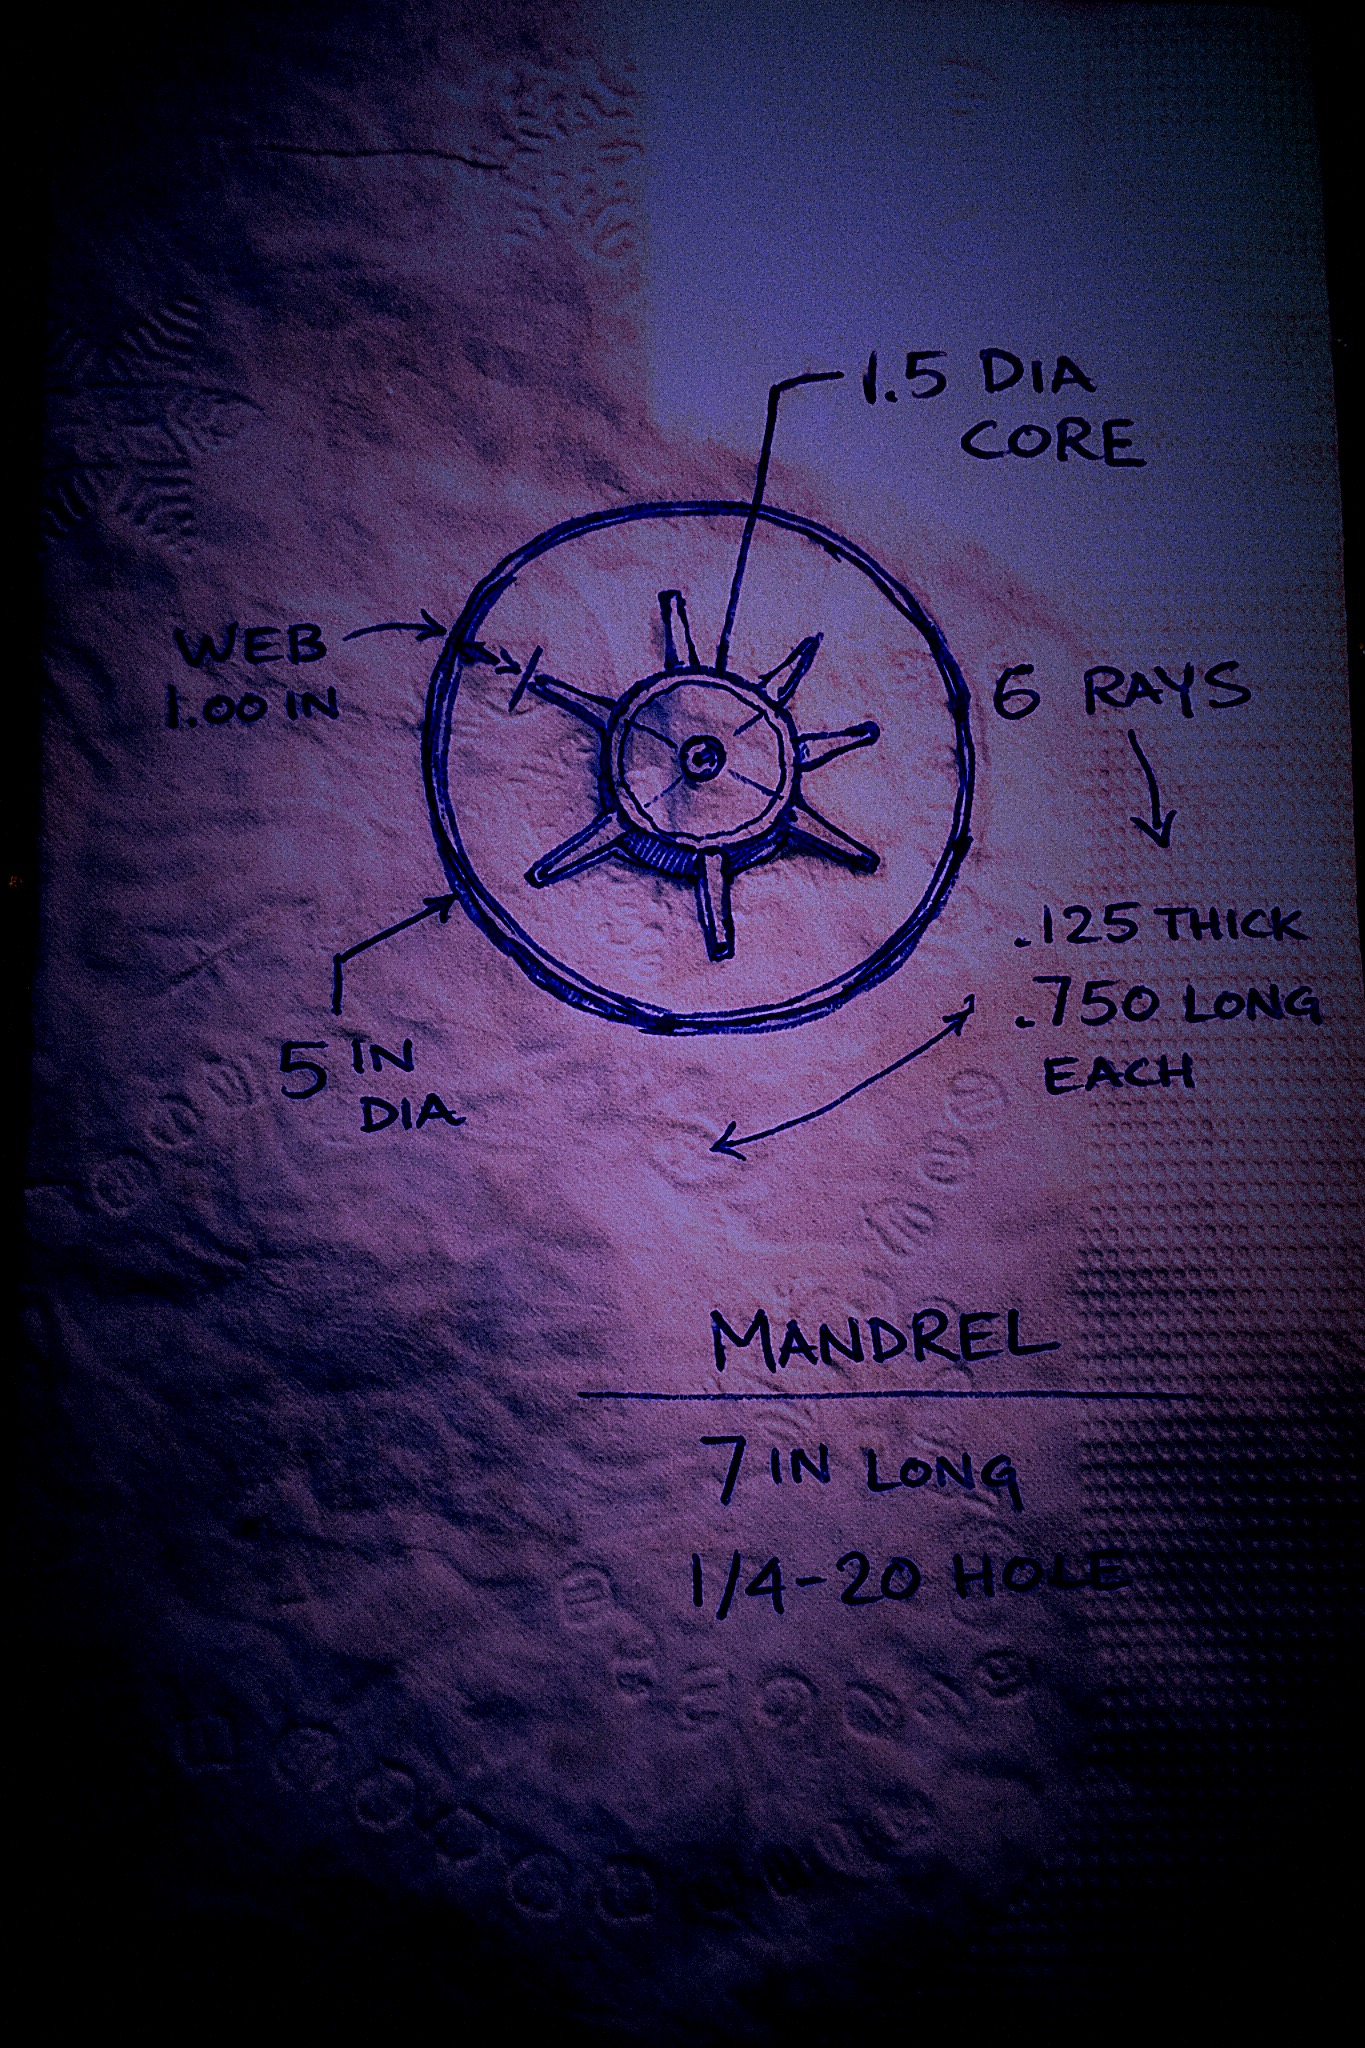 1.5 DIA
CORE
WEB
1.00 IN
6 RAYS
.125 THICK
.750 LONG
EACH
5 IN
DIA
MANDREL
7 IN LONG
1/4-20 HOLE